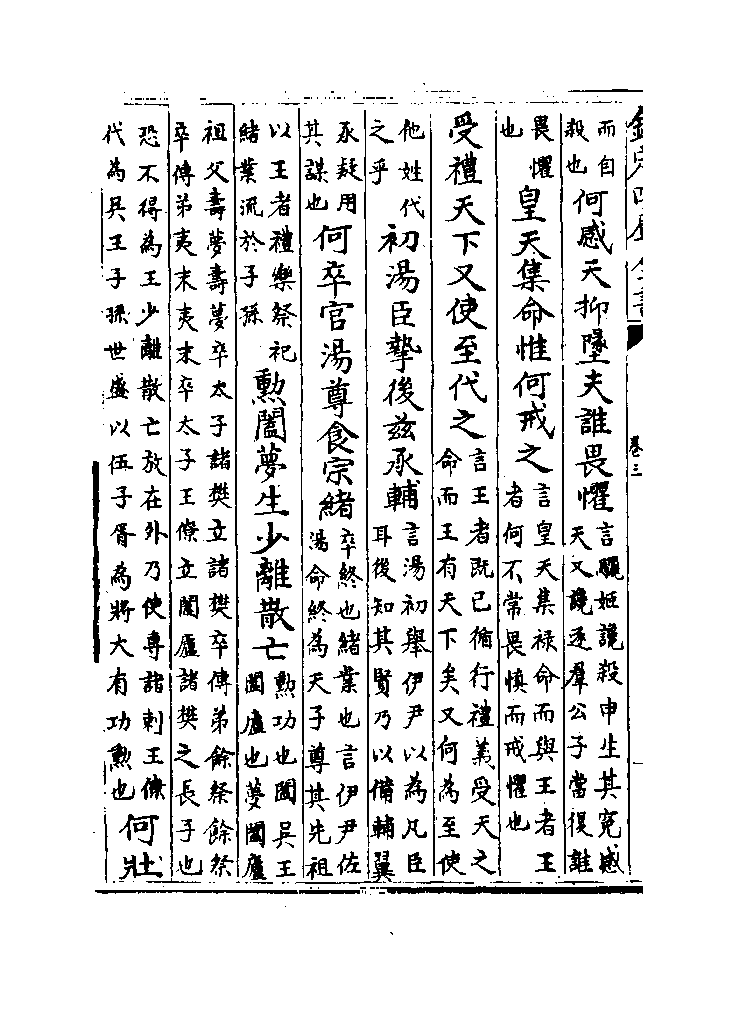 欽定四庫全書
卷三
而自殺也何感天抑墜夫誰畏懼言驪姬讒殺申生其冤感天又讒逐羣公子當復誰
畏懼也皇天集命惟何戒之言皇天集禄命而與王者王者何不常畏慎而戒懼也
受禮天下又使至代之言王者既已循行禮義受天之命而王有天下矣又何為至使
他姓代之乎初湯臣摯後兹承輔言湯初舉伊尹以為凡臣耳後知其賢乃以備輔翼
承疑用其謀也何卒官湯尊食宗緒卒終也緒業也言伊尹佐湯命終為天子尊其先祖
以王者禮樂祭祀緒業流於子孫勲闔夢生少離散亡勲功也闔吳王闔廬也夢闔廬
祖父壽夢壽夢卒太子諸樊立諸樊卒傳弟餘祭餘祭卒傳弟夷末夷末卒太子王僚立闔廬諸樊之長子也
恐不得為王少離散亡放在外乃使專諸刺王僚代為吳王子孫世盛以伍子胥為將大有功勲也何壯